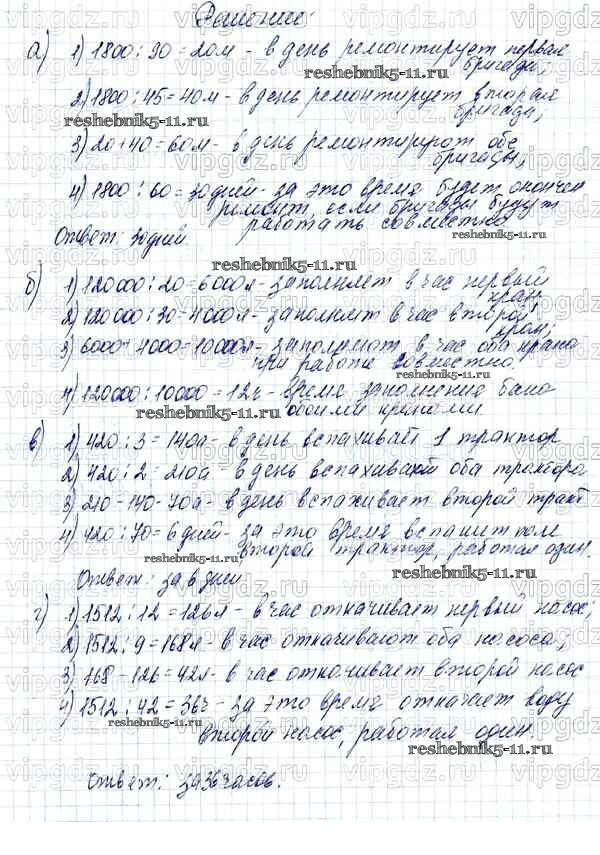 Решение:
а) 1) 1800 : 90 = 20м - в день ремонтирует первая
бригада;
2) 1800 : 45 = 40м - в день ремонтирует вторая
бригада;
3) 20 + 40 = 60м - в день ремонтируют обе
бригады;
4) 1800 : 60 = 30 дней - за это время будет окончен
ремонт, если бригады будут
работать совместно
Ответ: 30 дней.
б) 1) 120000 : 20 = 6000л - заполняет в час первый
кран;
2) 120000 : 30 = 4000л - заполняет в час второй
кран;
3) 6000 + 4000 = 10000л - заполняют в час оба крана
при работе совместно.
4) 120000 : 10000 = 12ч - время заполнения бака
обоими кранами.
в) 1) 420 : 3 = 140а - в день вспахивает 1 трактор
2) 420 : 2 = 210а - в день вспахивают оба трактора
3) 210 - 140 = 70а - в день вспахивает второй тракт
4) 420 : 70 = 6 дней - за это время вспашит поле
второй трактор, работая один.
Ответ: за 6 дней
г) 1) 1512 : 12 = 126л - в час откачивает первый насос;
2) 1512 : 9 = 168л - в час откачивают оба насоса;
3) 168 - 126 = 42л - в час откачивает второй насос
4) 1512 : 42 = 36ч - за это время откачает воду
второй насос, работая один.
Ответ: за 36 часов.
vipgdz.ru
reshebnik5-11.ru